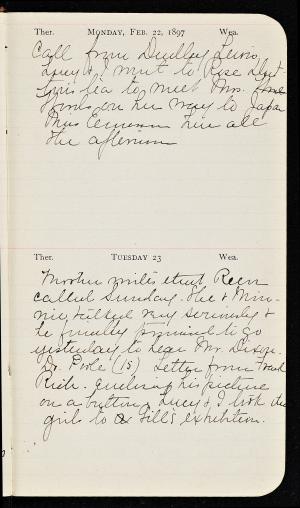 Ther. MONDAY, FEB. 22, 1897 Wea.
Call from Dudley Lewis.
Lucy & I went to Rose
tea to meet Mrs.
on her way to Japan
Miss Emerson here all
the afternoon
Ther. TUESDAY 23 Wea.
Mother writes that
called Sunday. She & Min-
nie talked very seriously &
he finally promised to go
yesterday to hear Mr. Dixon.
Dr. Poole (15) Letter from
Rich. enclosing his picture
on a button. Lucy & I took the
girls to Gill's exhibition.